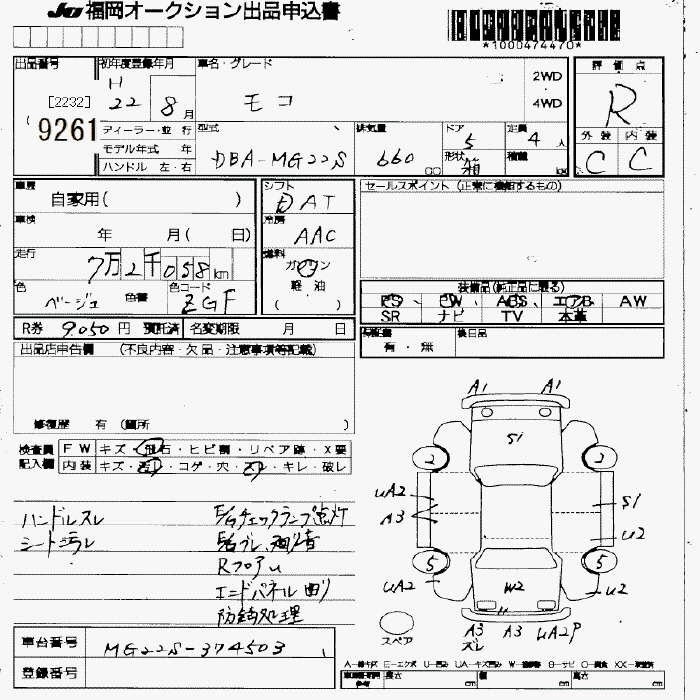 JU 福岡オークション出品申込書
*1000474470*
出品番号
[2232]
9261
初年度登録年月
H
22 8月
車名・グレード
モコ
2WD
4WD
評価点
R
外装 内装
C C
ディーラー・並行
モデル年式 年
ハンドル 左・右
型式
DBA-MG22S
排気量
660
cc
ドア
5
形状
箱
定員
4人
積載
kg
車歴
自家用( )
車検
年 月( 日)
走行
7万2千058km
色
ベージュ
色替
色コード
ZGF
シフト
D AT
冷房
AAC
燃料
ガソリン
軽油
( )
セールスポイント (正常に機能するもの)
装備品(純正品に限る)
PS PW ABS エアB AW
SR ナビ TV 本革
保証書
有・無
後日品
R券 9050円 預託済 名変期限 月 日
出品店申告欄 (不良内容・欠品・注意事項等記載)
修復歴 有 (箇所 )
検査員
記入欄
FW キズ・飛石・ヒビ割・リペア跡・X要
内装 キズ・汚レ・コゲ・穴・スレ・キレ・破レ
ハンドルスレ
シート汚レ
E/Gチェックランプ点灯
Rフロアu
エンドパネル曲り
防錆処理
A1 A1
S1
2 2
uA2
A3
S1
u2
5 5
uA2
W2
u2
スペア
A3
スレ
A3
uA2P
車台番号
MG22S-374503
登録番号
A-線キズ E-エクボ U-凹み UA-キズ凹み
長さ cm 幅 cm 高さ cm